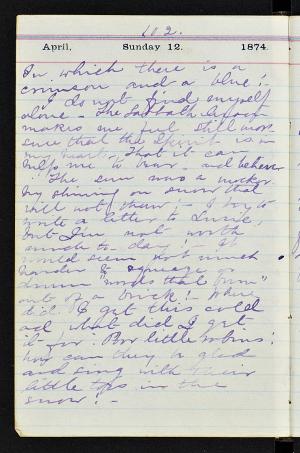 102.
April, Sunday 12. 1874.
In which there is a
crimson and a blue! -
I do not find myself
alone - The Sabbath
makes me feel still more
sure that the Spirit is in
my heart. That it can
help me to bear - and believe
The sun was a mocker
by shining on snow that
will not thaw! - I try to
write a letter to
but I'm not worth
much to-day! - It
would seem not much
harder to squeeze or
"words that burn"
out of a brick! - Where
did I get this cold
and what did I get
it for. Poor little robins!
how can they be glad
and sing with their
little toes in the
snow! -